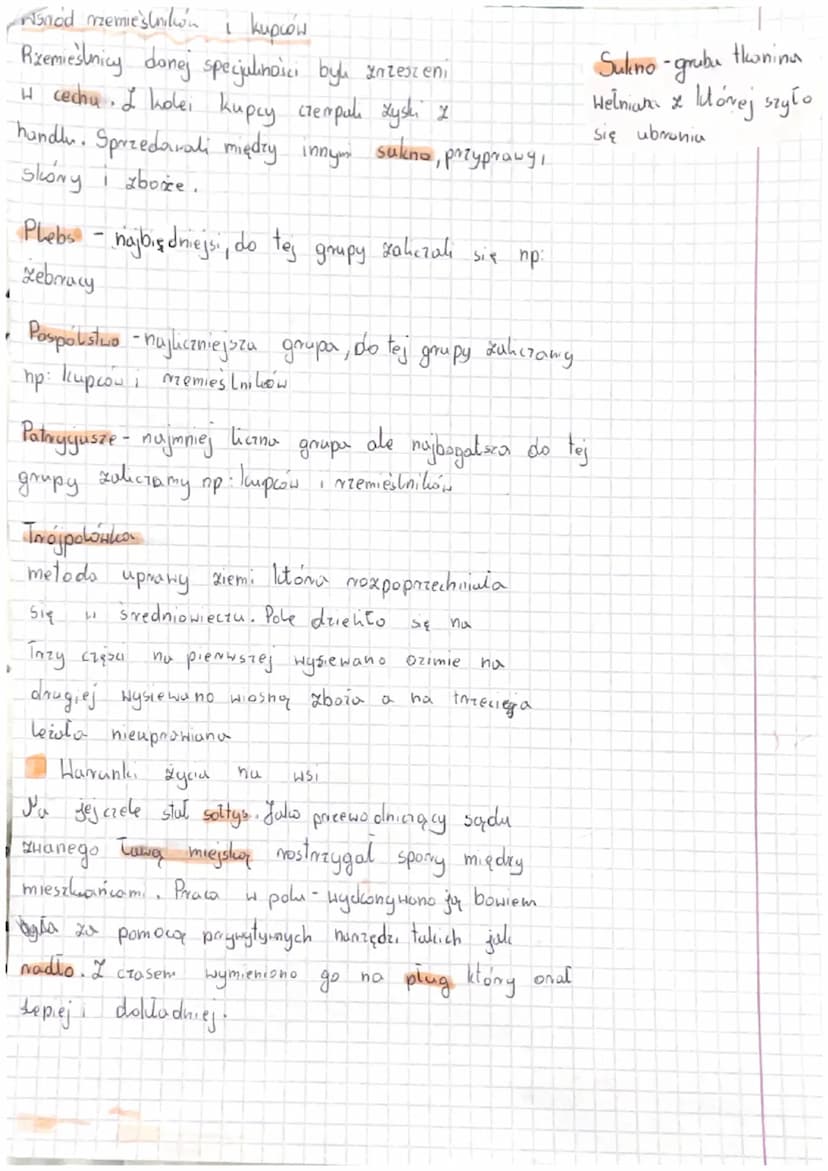 Wśród rzemieślników i kupców
Rzemieślnicy danej specjalności byli zrzeszeni
w cechu. Z kolei kupcy czerpali zyski z
handlu. Sprzedawali między innymi sukno, przyprawy,
skóry i zboże.
Sukno - gruba tkanina
wełniana z której szyto
się ubrania
Plebs - najbiędniejsi, do tej grupy zaliczali się np:
żebracy
Pospólstwo - najliczniejsza grupa, do tej grupy zaliczamy
np: kupców i rzemieślników
Patrycjusze - najmniej liczna grupa ale najbogatsza do tej
grupy zaliczamy np: kupców i rzemieślników
Trójpolówka
metoda uprawy ziemi która rozpoprzechniała
się w średniowieczu. Pole dzieliło sę na
Trzy częsci na pierwszej wysiewano ozimie na
drugiej wysiewano wiosną zboża a na trzeciega
leżała nieuprawiana
Warunki życia na wsi
Na jej czele stał sołtys. Jako przewodniczący sądu
zwanego ławą miejską rostrzygał spory między
mieszkańcami. Praca w polu - wydkonywano ją bowiem
za pomocą prymytywnych narzędzi takich jak
radło. Z czasem wymieniono go na pług który orał
lepiej i dokładniej.